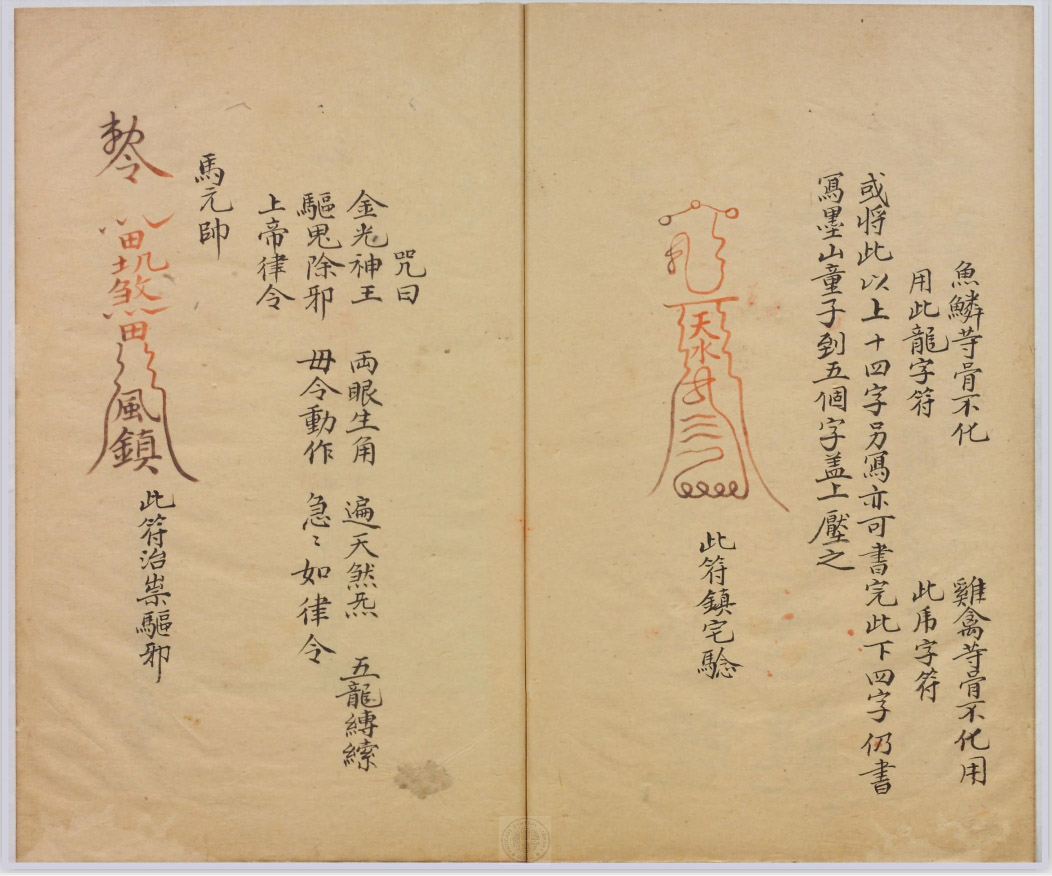 魚鱗等骨不化
用此龍字符
雞禽等骨不化用
此虎字符
或將此以上十四字另寫亦可書完此下四字仍書
寫墨山童子到五個字盖上壓之
天水
此符鎮宅騐
咒曰
金光神王 両眼生角 遍天煞炁 五龍縳
驅鬼除邪 毋令動作 急〻如律令
上帝律令
馬元帥
勅令
煞
風鎮
此符治祟驅邪